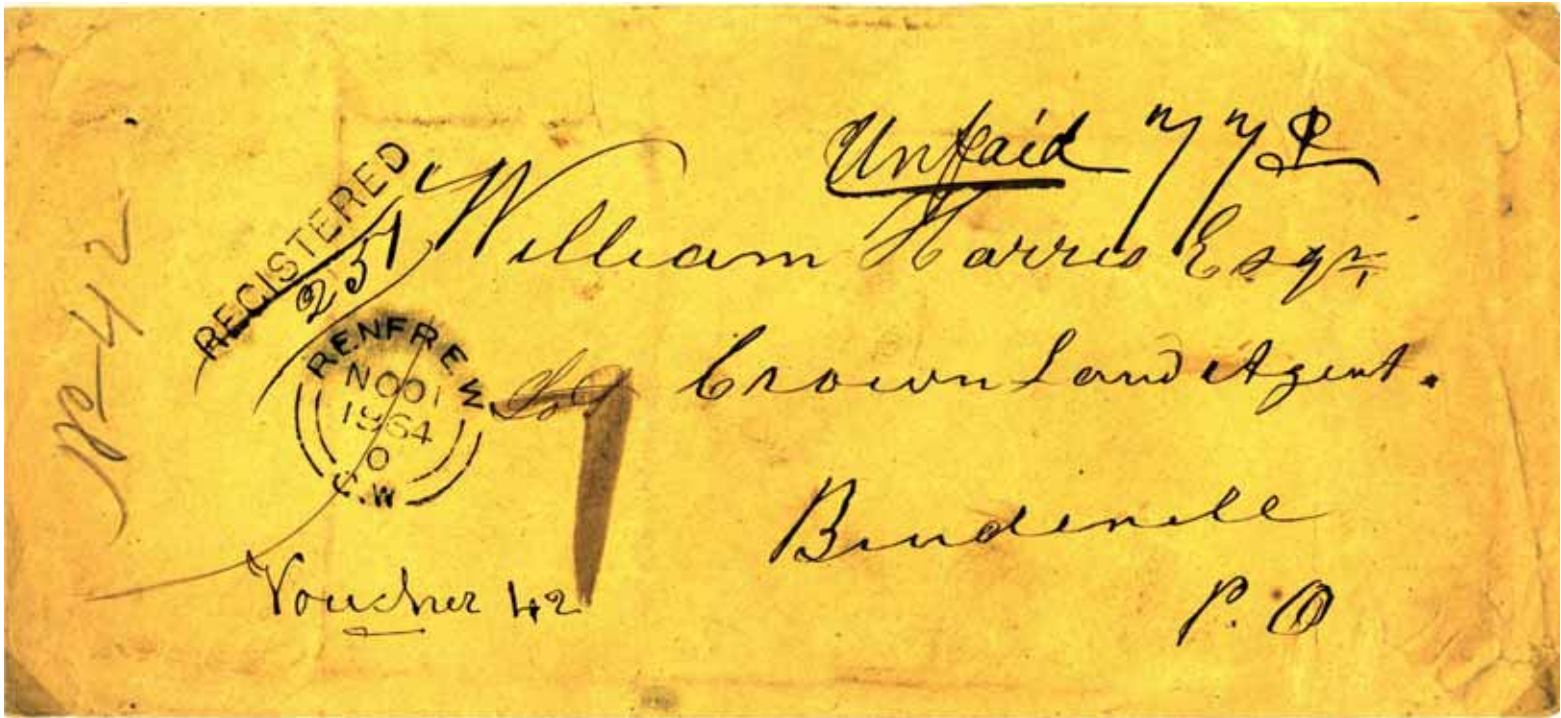 Unpaid 77
REGISTERED
251
William Harris Esqr
RENFREW
NO 01
1864
0
C.W
7
Crown Land Agent.
Brudenell
P. O
Voucher 42
42